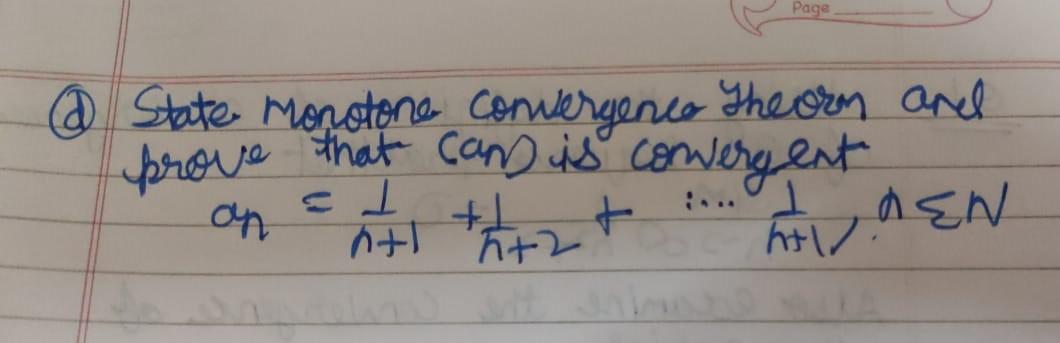 Page
(d) State Monotone Convergence Theorm and
prove that (an) is convergent
an = 1/n+1 + 1/n+2 + .... 1/n+1, n ∈ N